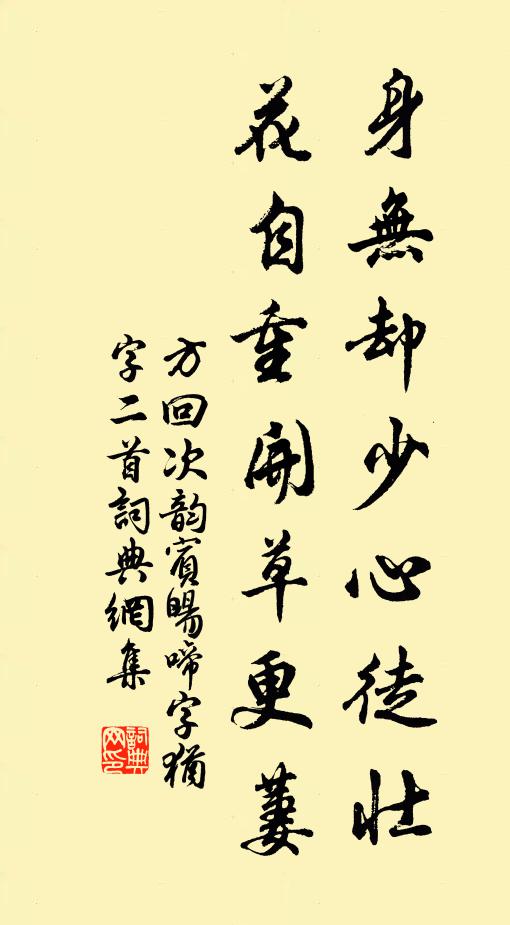 身無却少心徒壯
花自重開草更萋
方回次韵賓暘啼字猶
字二首詞典網集
詞典網印